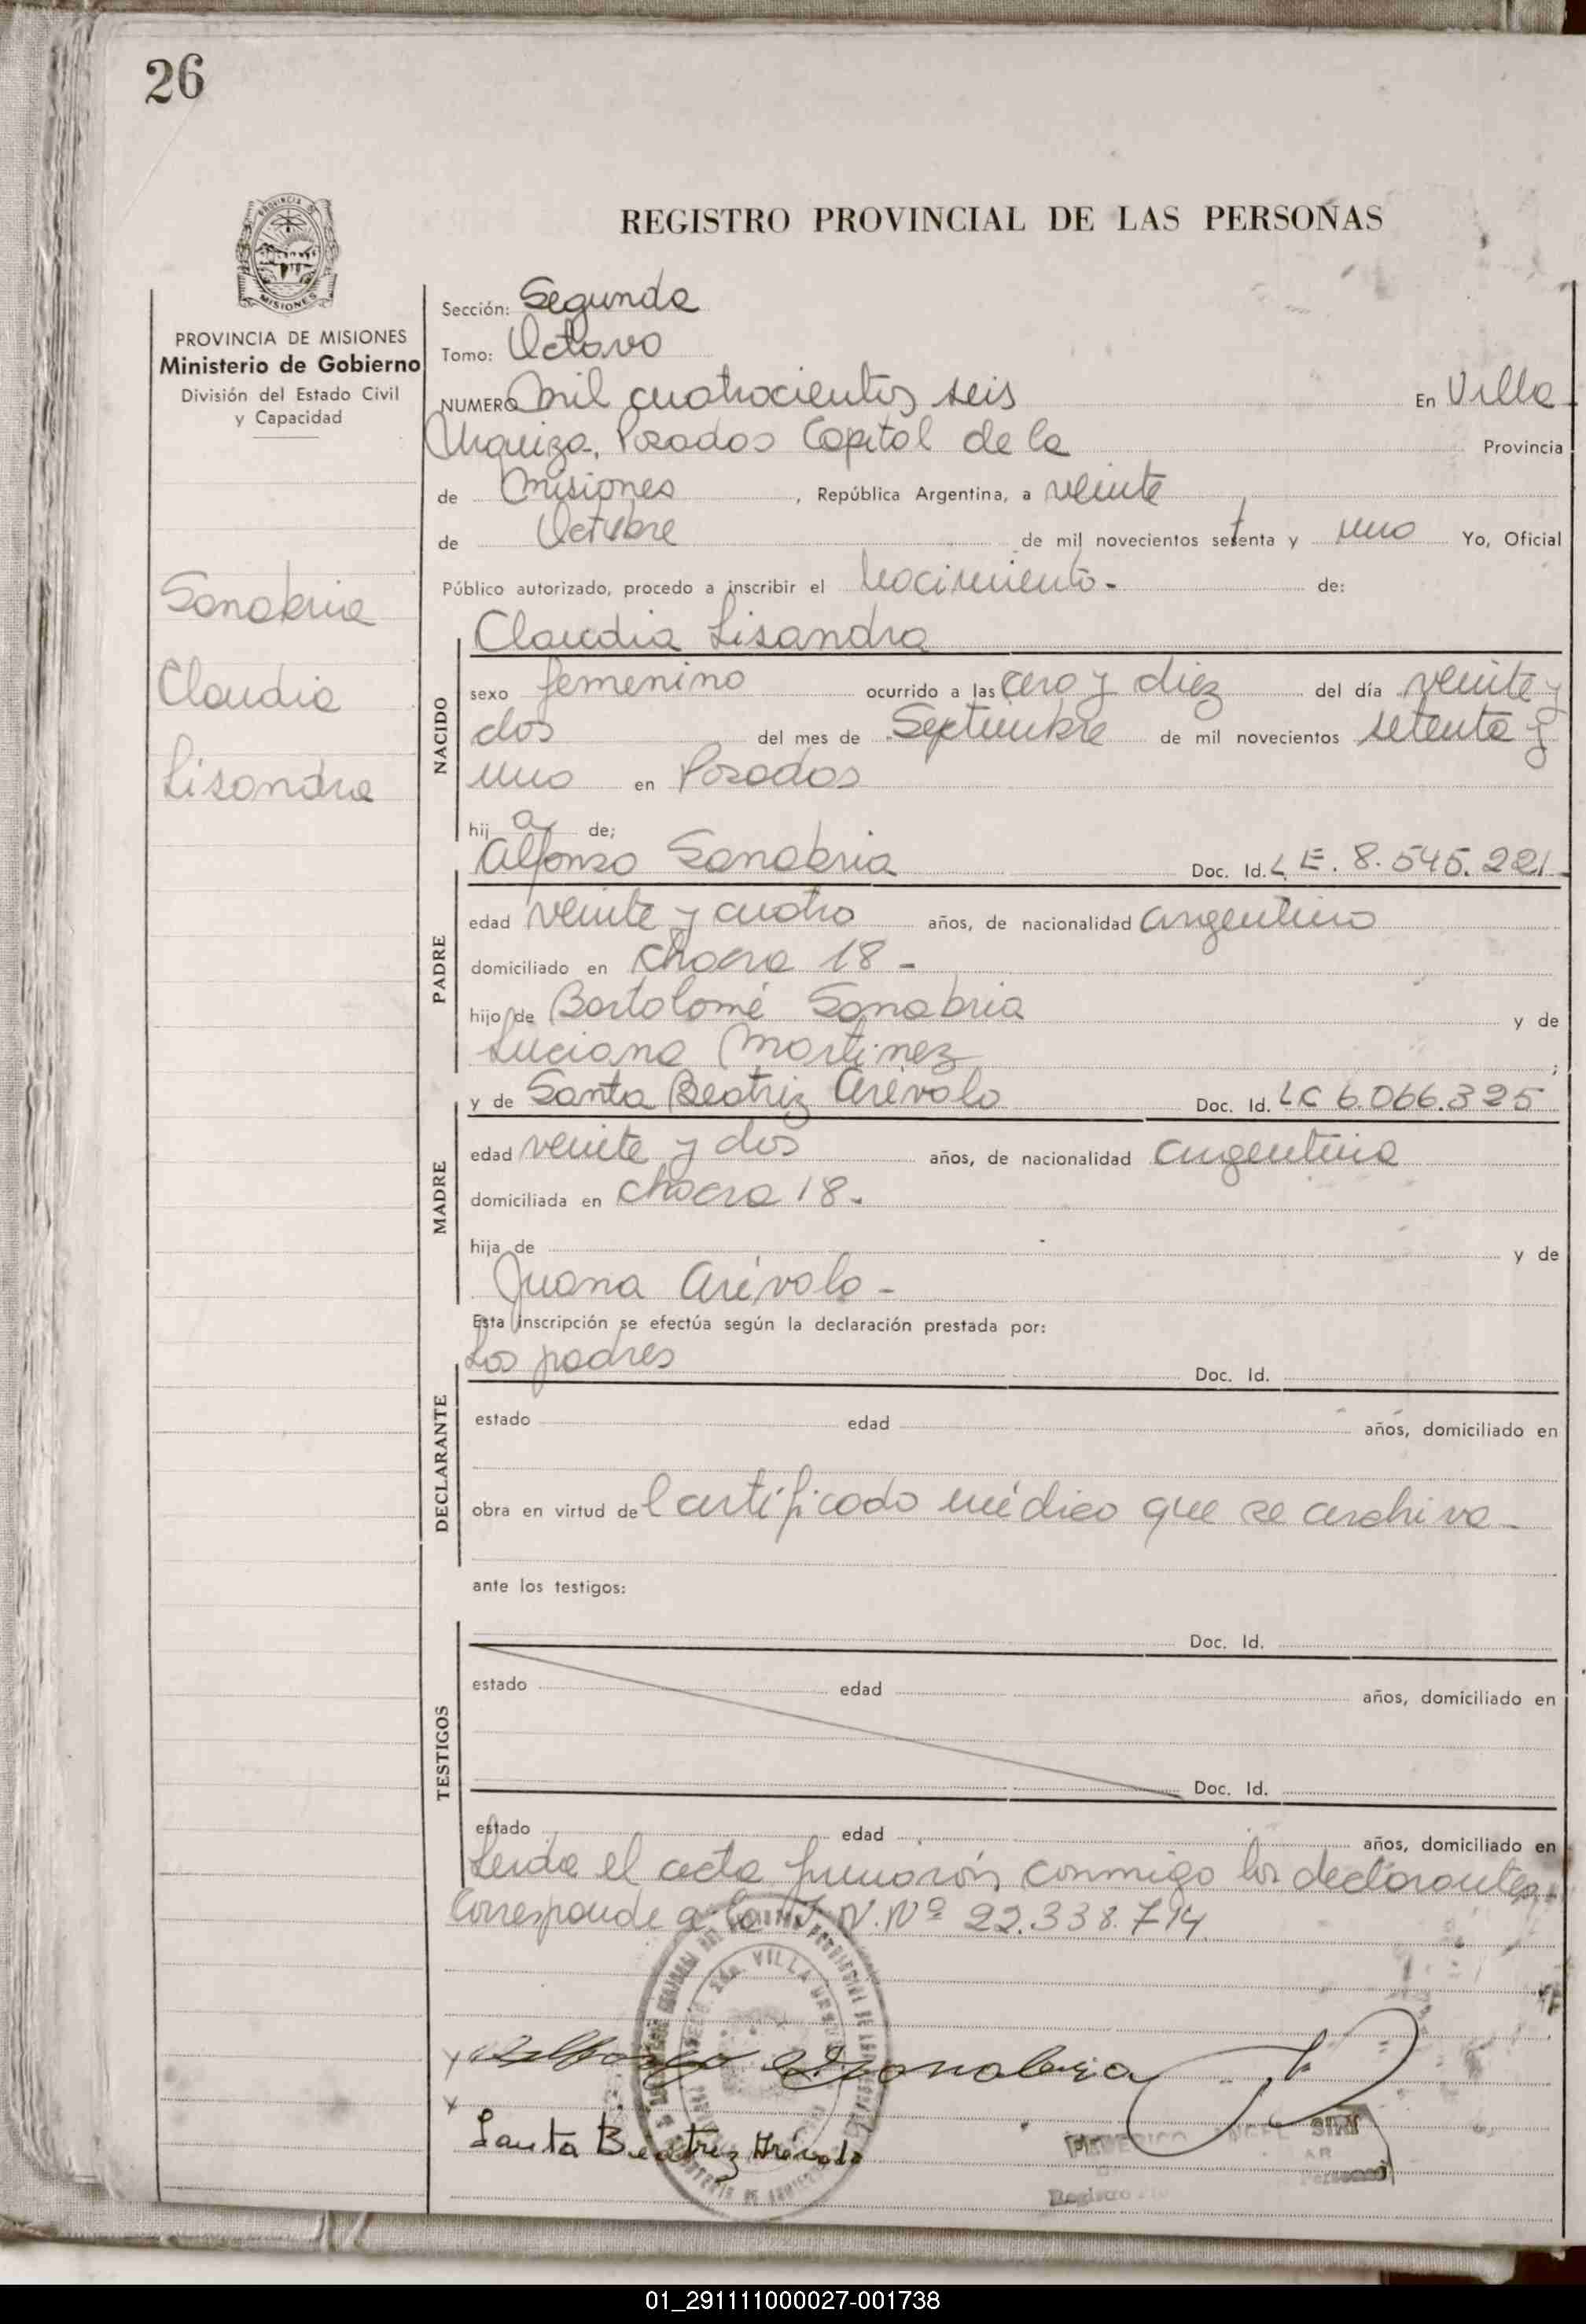 26
REGISTRO PROVINCIAL DE LAS PERSONAS
PROVINCIA DE
MISIONES
PROVINCIA DE MISIONES
Ministerio de Gobierno
División del Estado Civil
y Capacidad
Sanabria
Claudia
Lisandra
Sección: Segunda
Tomo: Octavo
NUMERO Mil cuatrocientos seis En Villa
Urquiza, Posadas Capital de la Provincia
de Misiones, República Argentina, a veinte
de Octubre de mil novecientos setenta y uno Yo, Oficial
Público autorizado, procedo a inscribir el Nacimiento- de:
Claudia Lisandra
NACIDO
sexo femenino ocurrido a las cero y diez del día veinte y
dos del mes de Septiembre de mil novecientos setenta y
uno en Posadas
hija de;
Alfonso Sanabria Doc. Id. L.E. 8.545.221
PADRE
edad veinte y cuatro años, de nacionalidad argentino
domiciliado en chacra 18-
hijo de Bartolomé Sanabria y de
Luciana Martinez;
y de Santa Beatriz Arévalo Doc. Id. LC 6.066.325
MADRE
edad veinte y dos años, de nacionalidad argentina
domiciliada en chacra 18-
hija de y de
Juana Arévalo-
Esta inscripción se efectúa según la declaración prestada por:
Los padres Doc. Id.
DECLARANTE
estado edad años, domiciliado en
obra en virtud del certificado médico que se archiva-
ante los testigos:
Doc. Id.
TESTIGOS
estado edad años, domiciliado en
Doc. Id.
estado edad años, domiciliado en
Leida el acta firmarón conmigo los declarantes.
Corresponde a la I.N.Nº 22.338.714
VILLA
Alfonso Sanabria
Santa Beatriz Arévalo
FEDERICO
Registro
01_291111000027-001738